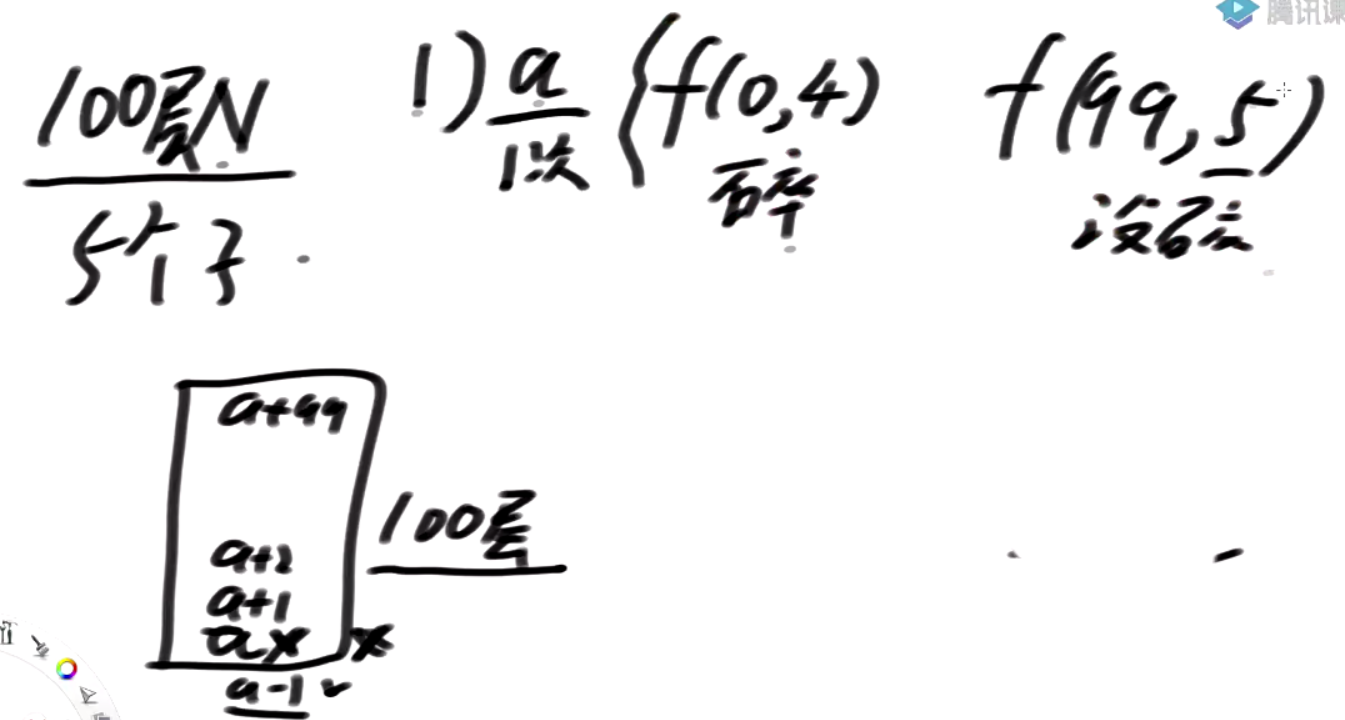 腾讯课
100层N
5个子
1) a
1次
f(0,4)
碎
f(99,5)
没碎
a+99
a+2
a+1
a x
x
a-1 ✓
100层